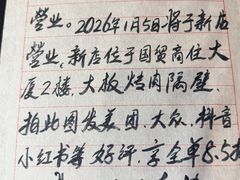 营业。2026年1月5日将于新店
营业,新店位于国贸商住大
厦2楼,大板烤肉隔壁.
拍此图发美团、大众、抖音
小红书等好评.享全单8.5折